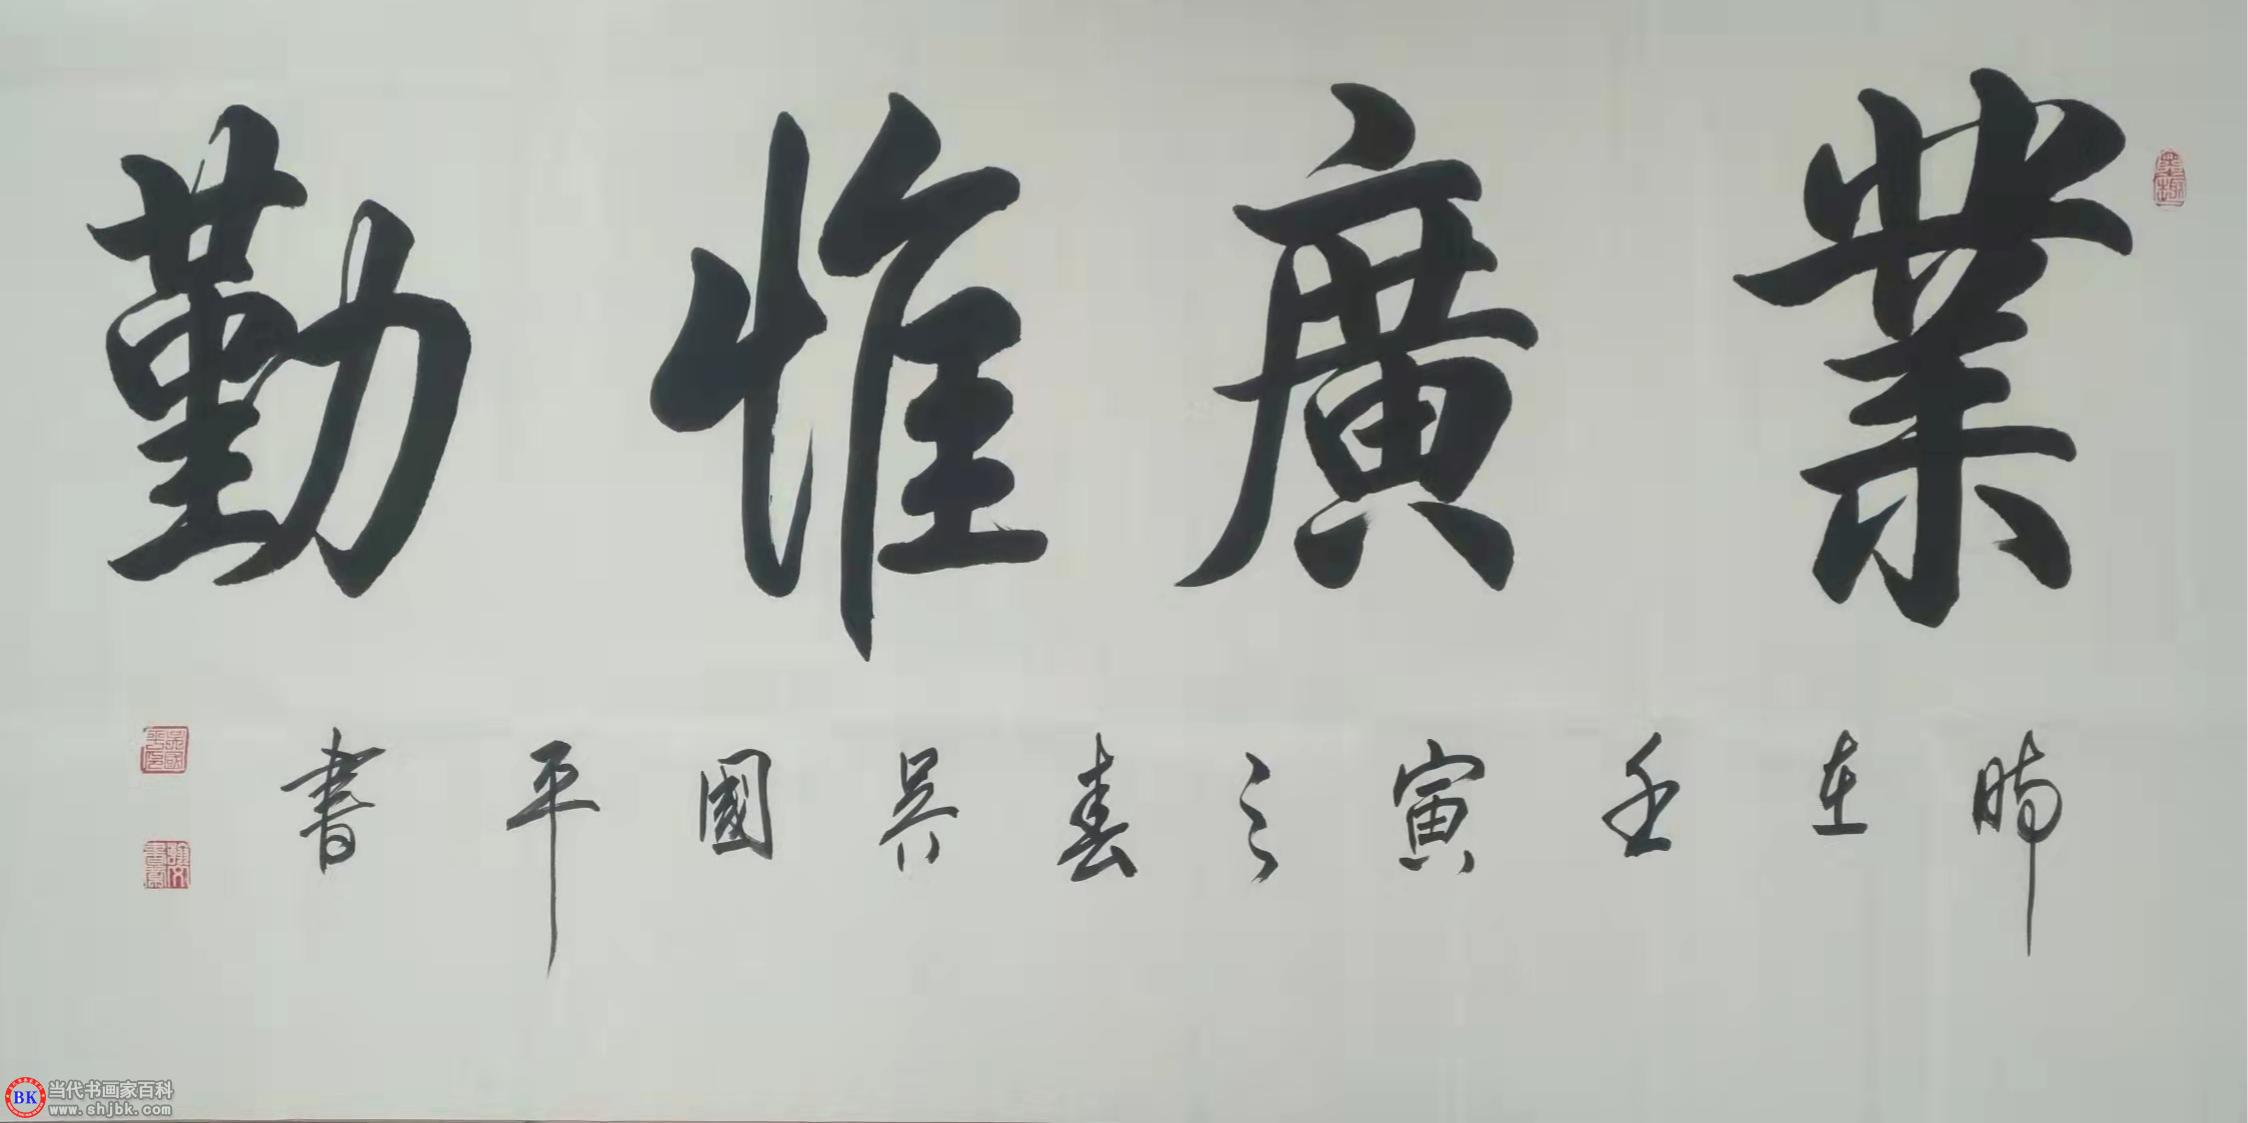 業廣惟勤
時在壬寅之春吳國平書
吳國平印
BK 当代书画家百科
www.shjbk.com